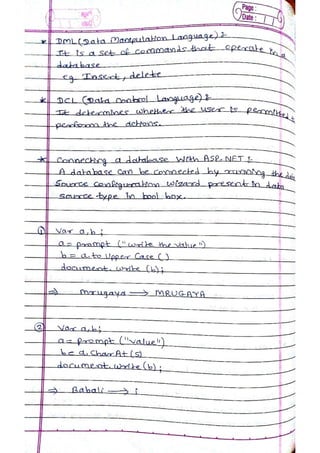 Page :
Date :
* DML (Data Manipulation Language) :
It is a set of commands that operate in a
database
eg. Insert, delete
* DCL (Data Control Language) :
It determines whether the user is permitted
perform the actions.
* Connecting a database With ASP.NET :
A database can be connected by running the data
Source configuration wizard present in data
source type in tool box.
① Var a,b;
a = prompt ("write the value")
b = a.toUpperCase()
document.write (b);
⇒ mrugaya → MRUGAYA
② Var a,b;
a = prompt ("value")
b = a.charAt(5)
document.write (b);
⇒ Babali → i